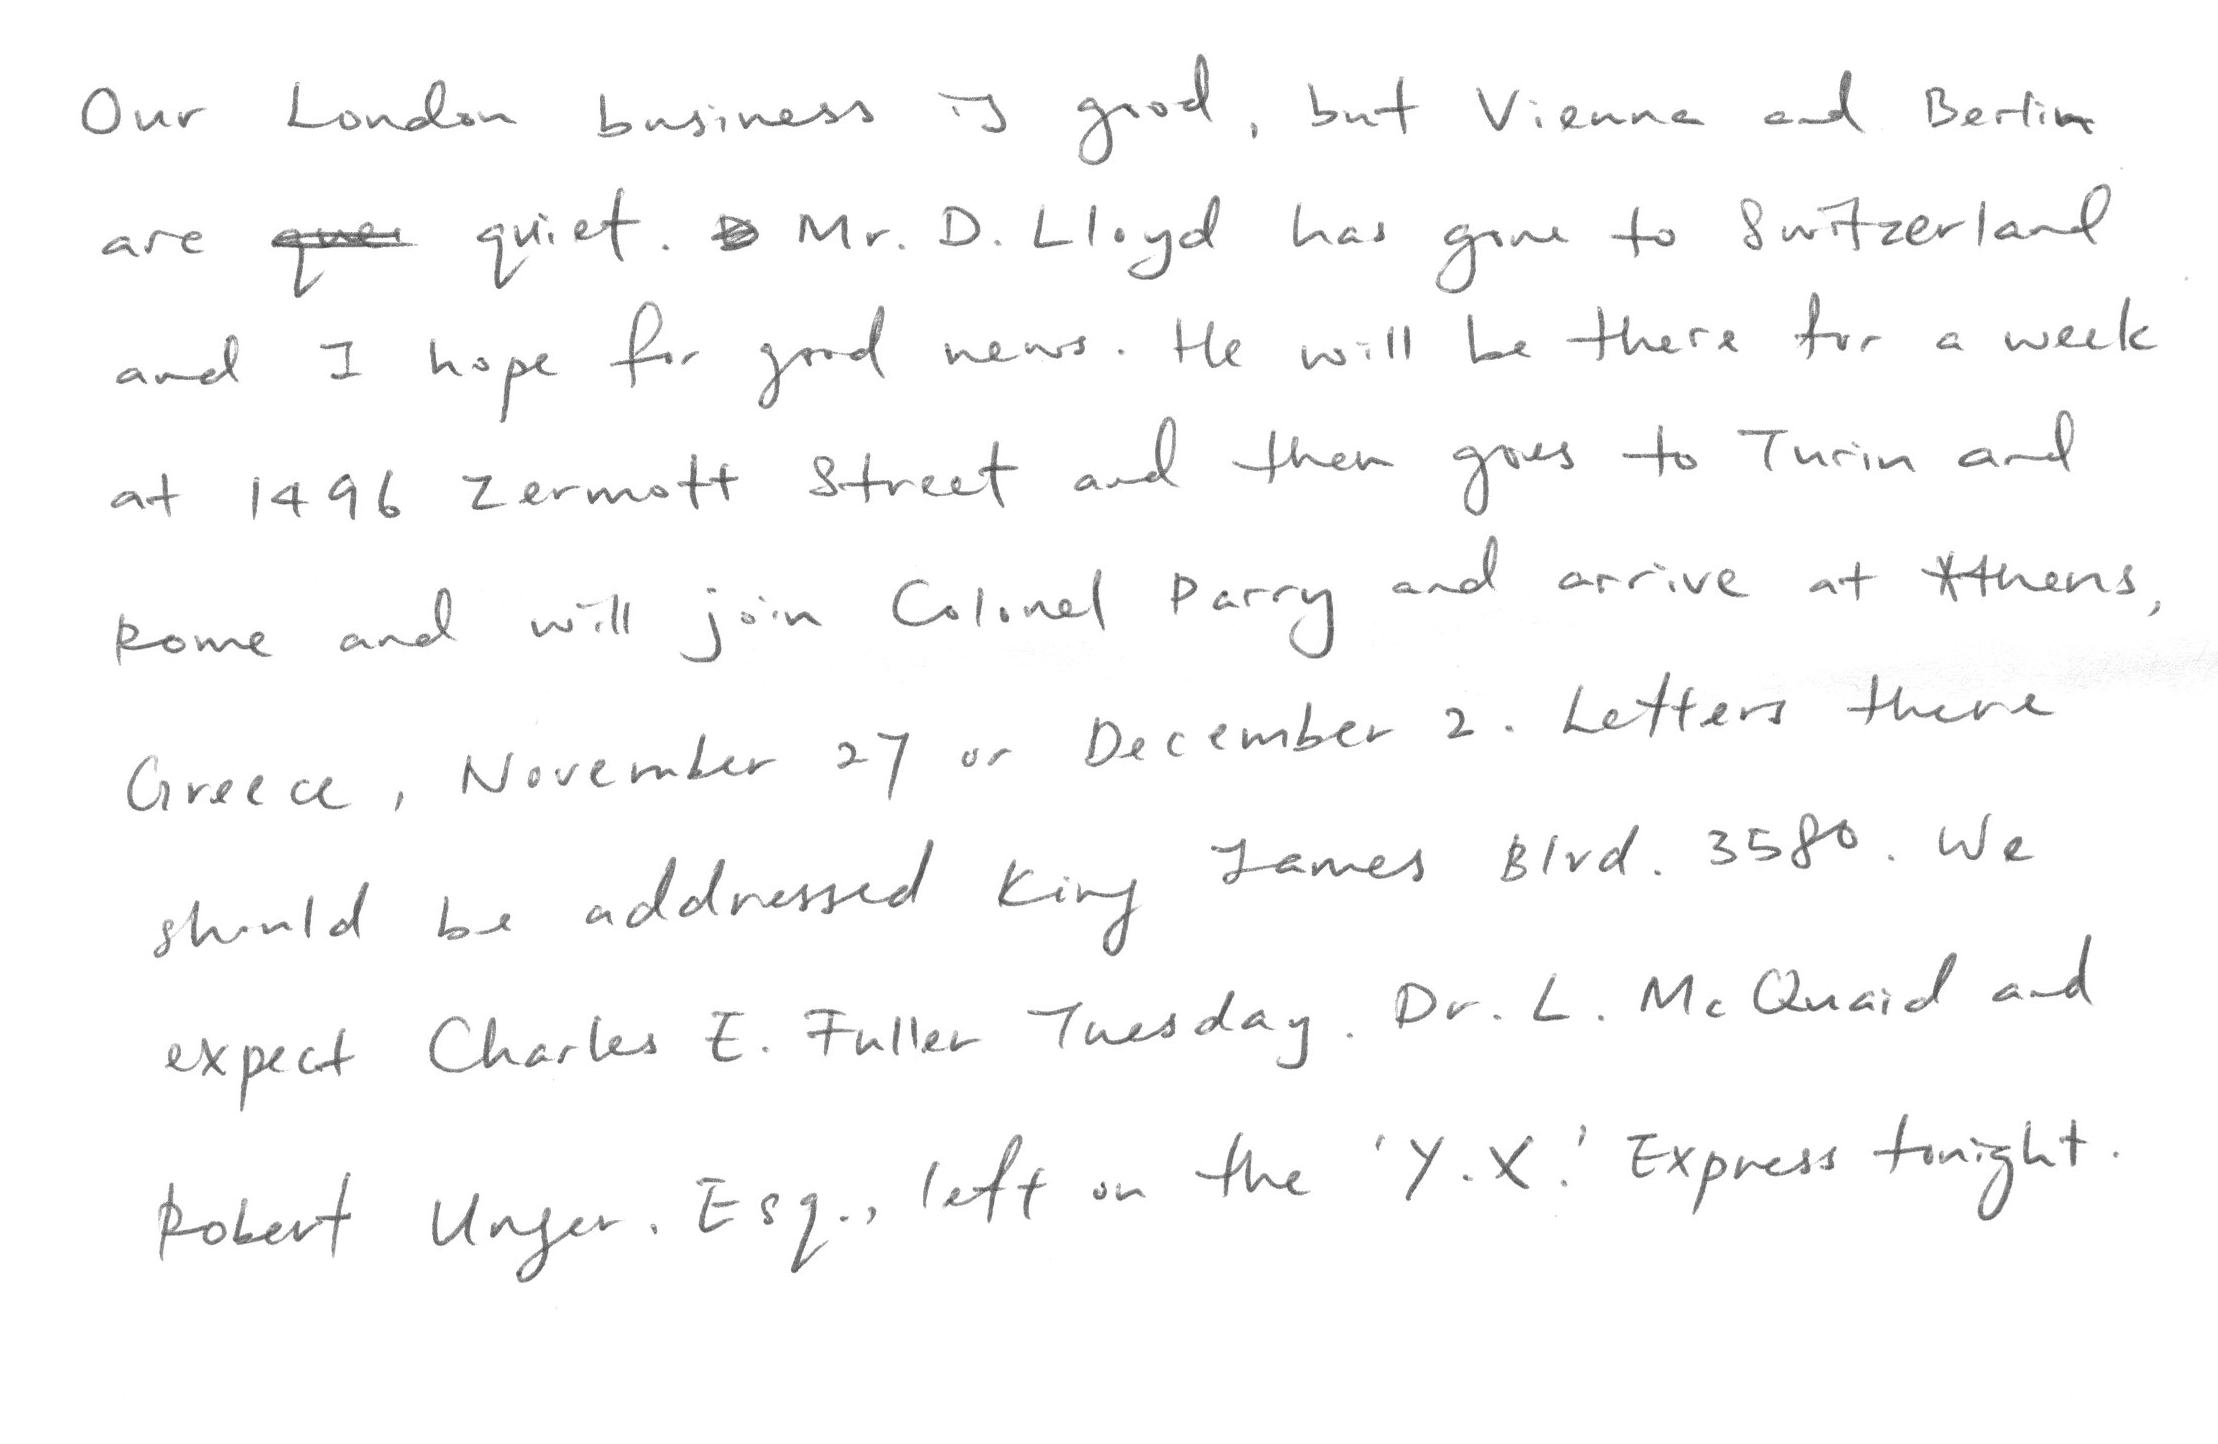 Our London business is good, but Vienna and Berlin
are quiet. Mr. D. Lloyd has gone to Switzerland
and I hope for good news. He will be there for a week
at 1496 Zermott Street and then goes to Turin and
Rome and will join Colonel Parry and arrive at Athens,
Greece, November 27 or December 2. Letters there
should be addressed King James Blvd. 3580. We
expect Charles E. Fuller Tuesday. Dr. L. McQuaid and
Robert Unger. Esq., left on the 'Y.X.' Express tonight.